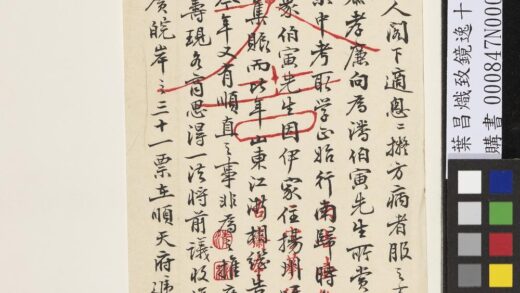 人閣下適擬方病者服之
孝廉向為潘伯寅先生所賞
中考取学正始行南歸時
家伯寅先生因伊家住揚州
集賑而比年山東江浙相繼告
年又有順直之事非為
壽現思得一法將前議收
皖岸之三十一票在順天府
葉昌熾致鏡逸十
購書 000847N000